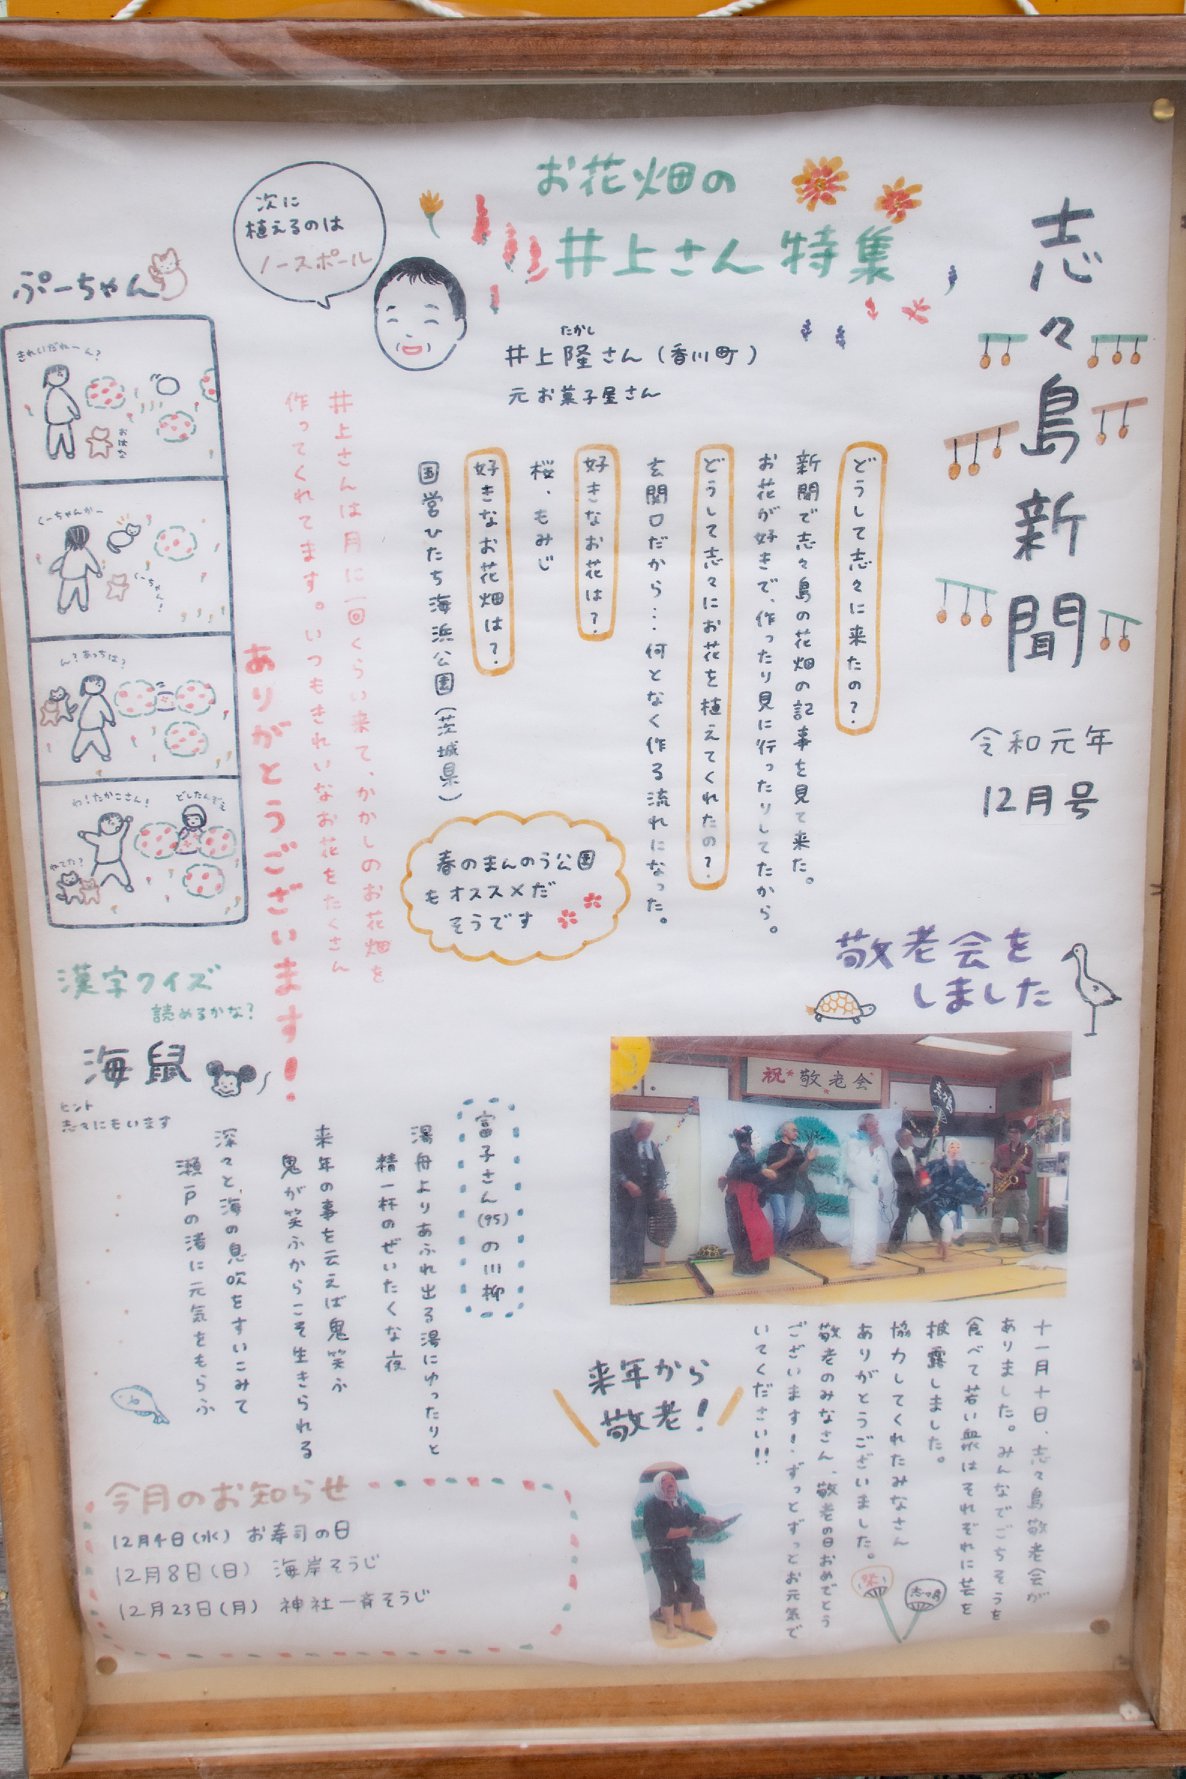 志々島新聞
令和元年
12月号
お花畑の
井上さん特集
たかし
井上隆さん(香川町)
元お菓子屋さん
次に
植えるのは
ノースポール
どうして志々に来たの?
新聞で志々島の花畑の記事を見て来た。
お花が好きで、作ったり見に行ったりしてたから。
どうして志々にお花を植えてくれたの?
玄関口だから…何となく作る流れになった。
好きなお花は?
桜、もみじ
好きなお花畑は?
国営ひたち海浜公園(茨城県)
春のまんのう公園
もオススメだ
そうです
井上さんは月に一回くらい来て、かかしのお花畑を
作ってくれてます。いつもきれいなお花をたくさん
ありがとうございます!
ぷーちゃん
きれいだねーん?
おはな
くーちゃんかー
くーちゃん!
ん?あっちは?
わ!たかこさん!
どしたんなぁ
漢字クイズ
読めるかな?
海鼠
ヒント
志々にもいます
敬老会を
しました
祝 敬老会
志々島
十一月十日、志々島敬老会が
ありました。みんなでごちそうを
食べて若い衆はそれぞれに芸を
披露しました。
協力してくれたみなさん
ありがとうございました。
敬老のみなさん、敬老の日おめでとう
ございます!ずっとずっとお元気で
いてください!!
志々島
来年から
敬老!
富子さん(95)の川柳
湯舟よりあふれ出る湯にゆったりと
精一杯のぜいたくな夜
来年の事を云えば鬼笑ふ
鬼が笑ふからこそ生きられる
深々と海の息吹をすいこみて
瀬戸の渚に元気をもらふ
今月のお知らせ
12月4日(水) お寿司の日
12月8日(日) 海岸そうじ
12月23日(月) 神社一斉そうじ